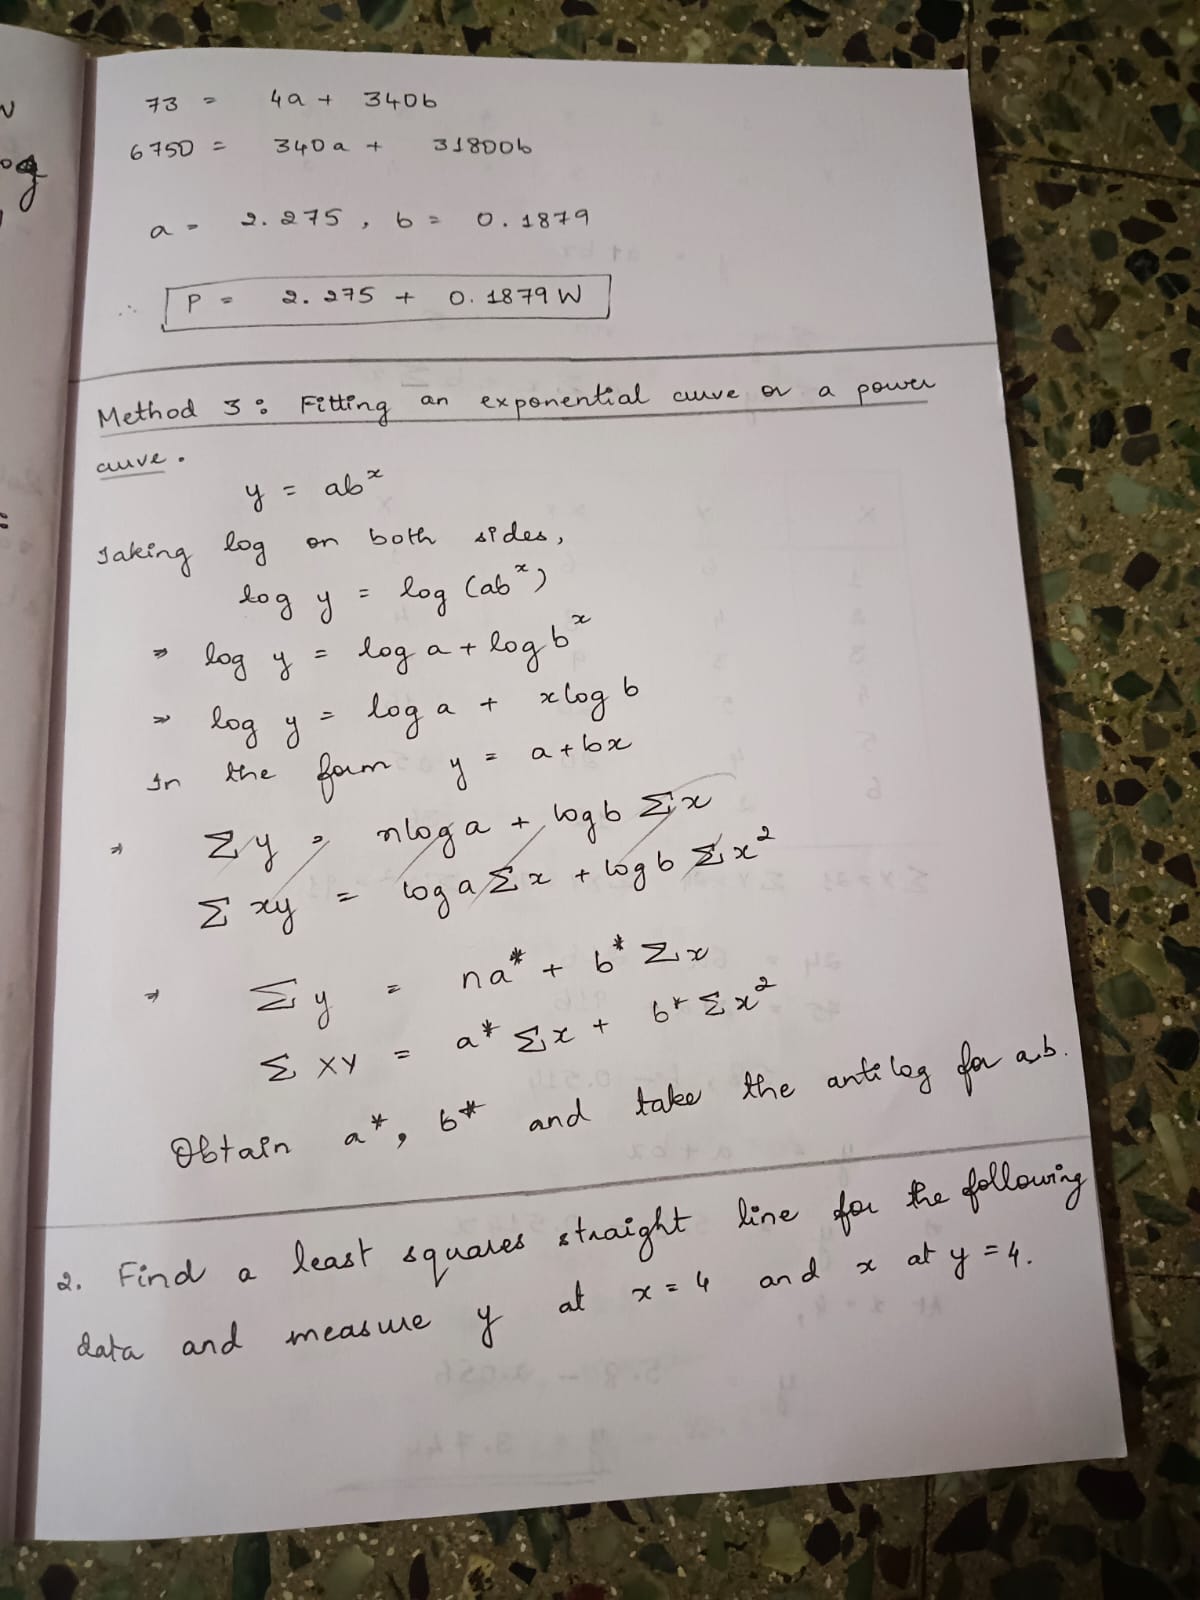 73 = 4a + 340b
6750 = 340a + 31800b
a = 2.275, b = 0.1879
∴ P = 2.275 + 0.1879 W
Method 3: Fitting an exponential curve or a power
curve.
y = ab^x
Taking log on both sides,
log y = log (ab^x)
⇒ log y = log a + log b^x
⇒ log y = log a + x log b
In the form y = a + bx
⇒ Σy = n log a + log b Σx
Σxy = log a Σx + log b Σx²
⇒ Σy = na* + b* Σx
Σxy = a* Σx + b* Σx²
Obtain a*, b* and take the antilog for a,b.
2. Find a least squares straight line for the following
data and measure y at x = 4 and x at y = 4.